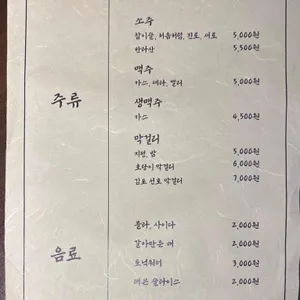 소주
참이슬, 처음처럼, 진로, 새로 5,000원
한라산 5,500원
맥주
카스, 테라, 켈리 5,000원
주류
생맥주
카스 4,500원
막걸리
지평, 밤 5,000원
호랑이 막걸리 6,000원
김포 선호 막걸리 7,000원
콜라, 사이다 2,000원
갈아만든 배 2,000원
음료
토닉워터 3,000원
레몬 슬라이스 2,000원